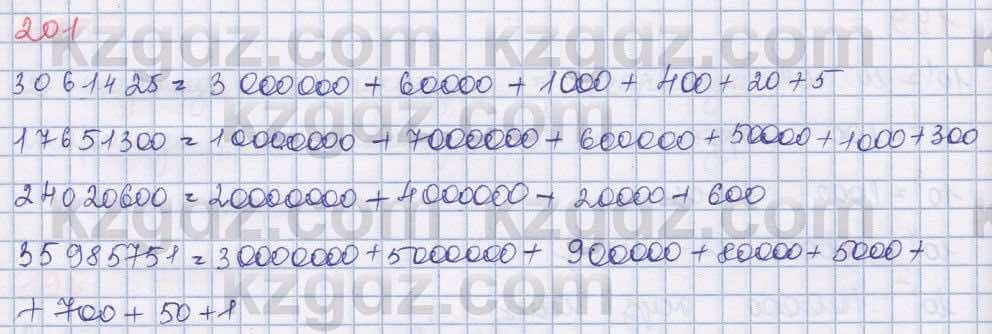 201
3061425 = 3000000 + 60000 + 1000 + 400 + 20 + 5
17651300 = 10000000 + 7000000 + 600000 + 50000 + 1000 + 300
24020600 = 20000000 + 4000000 + 20000 + 600
35985751 = 30000000 + 5000000 + 900000 + 80000 + 5000 +
+ 700 + 50 + 1
kzgdz.com kzgdz.com
kzgdz.com kzgdz.com
kzgdz.com kzgdz.com
kzgdz.com kzgdz.com